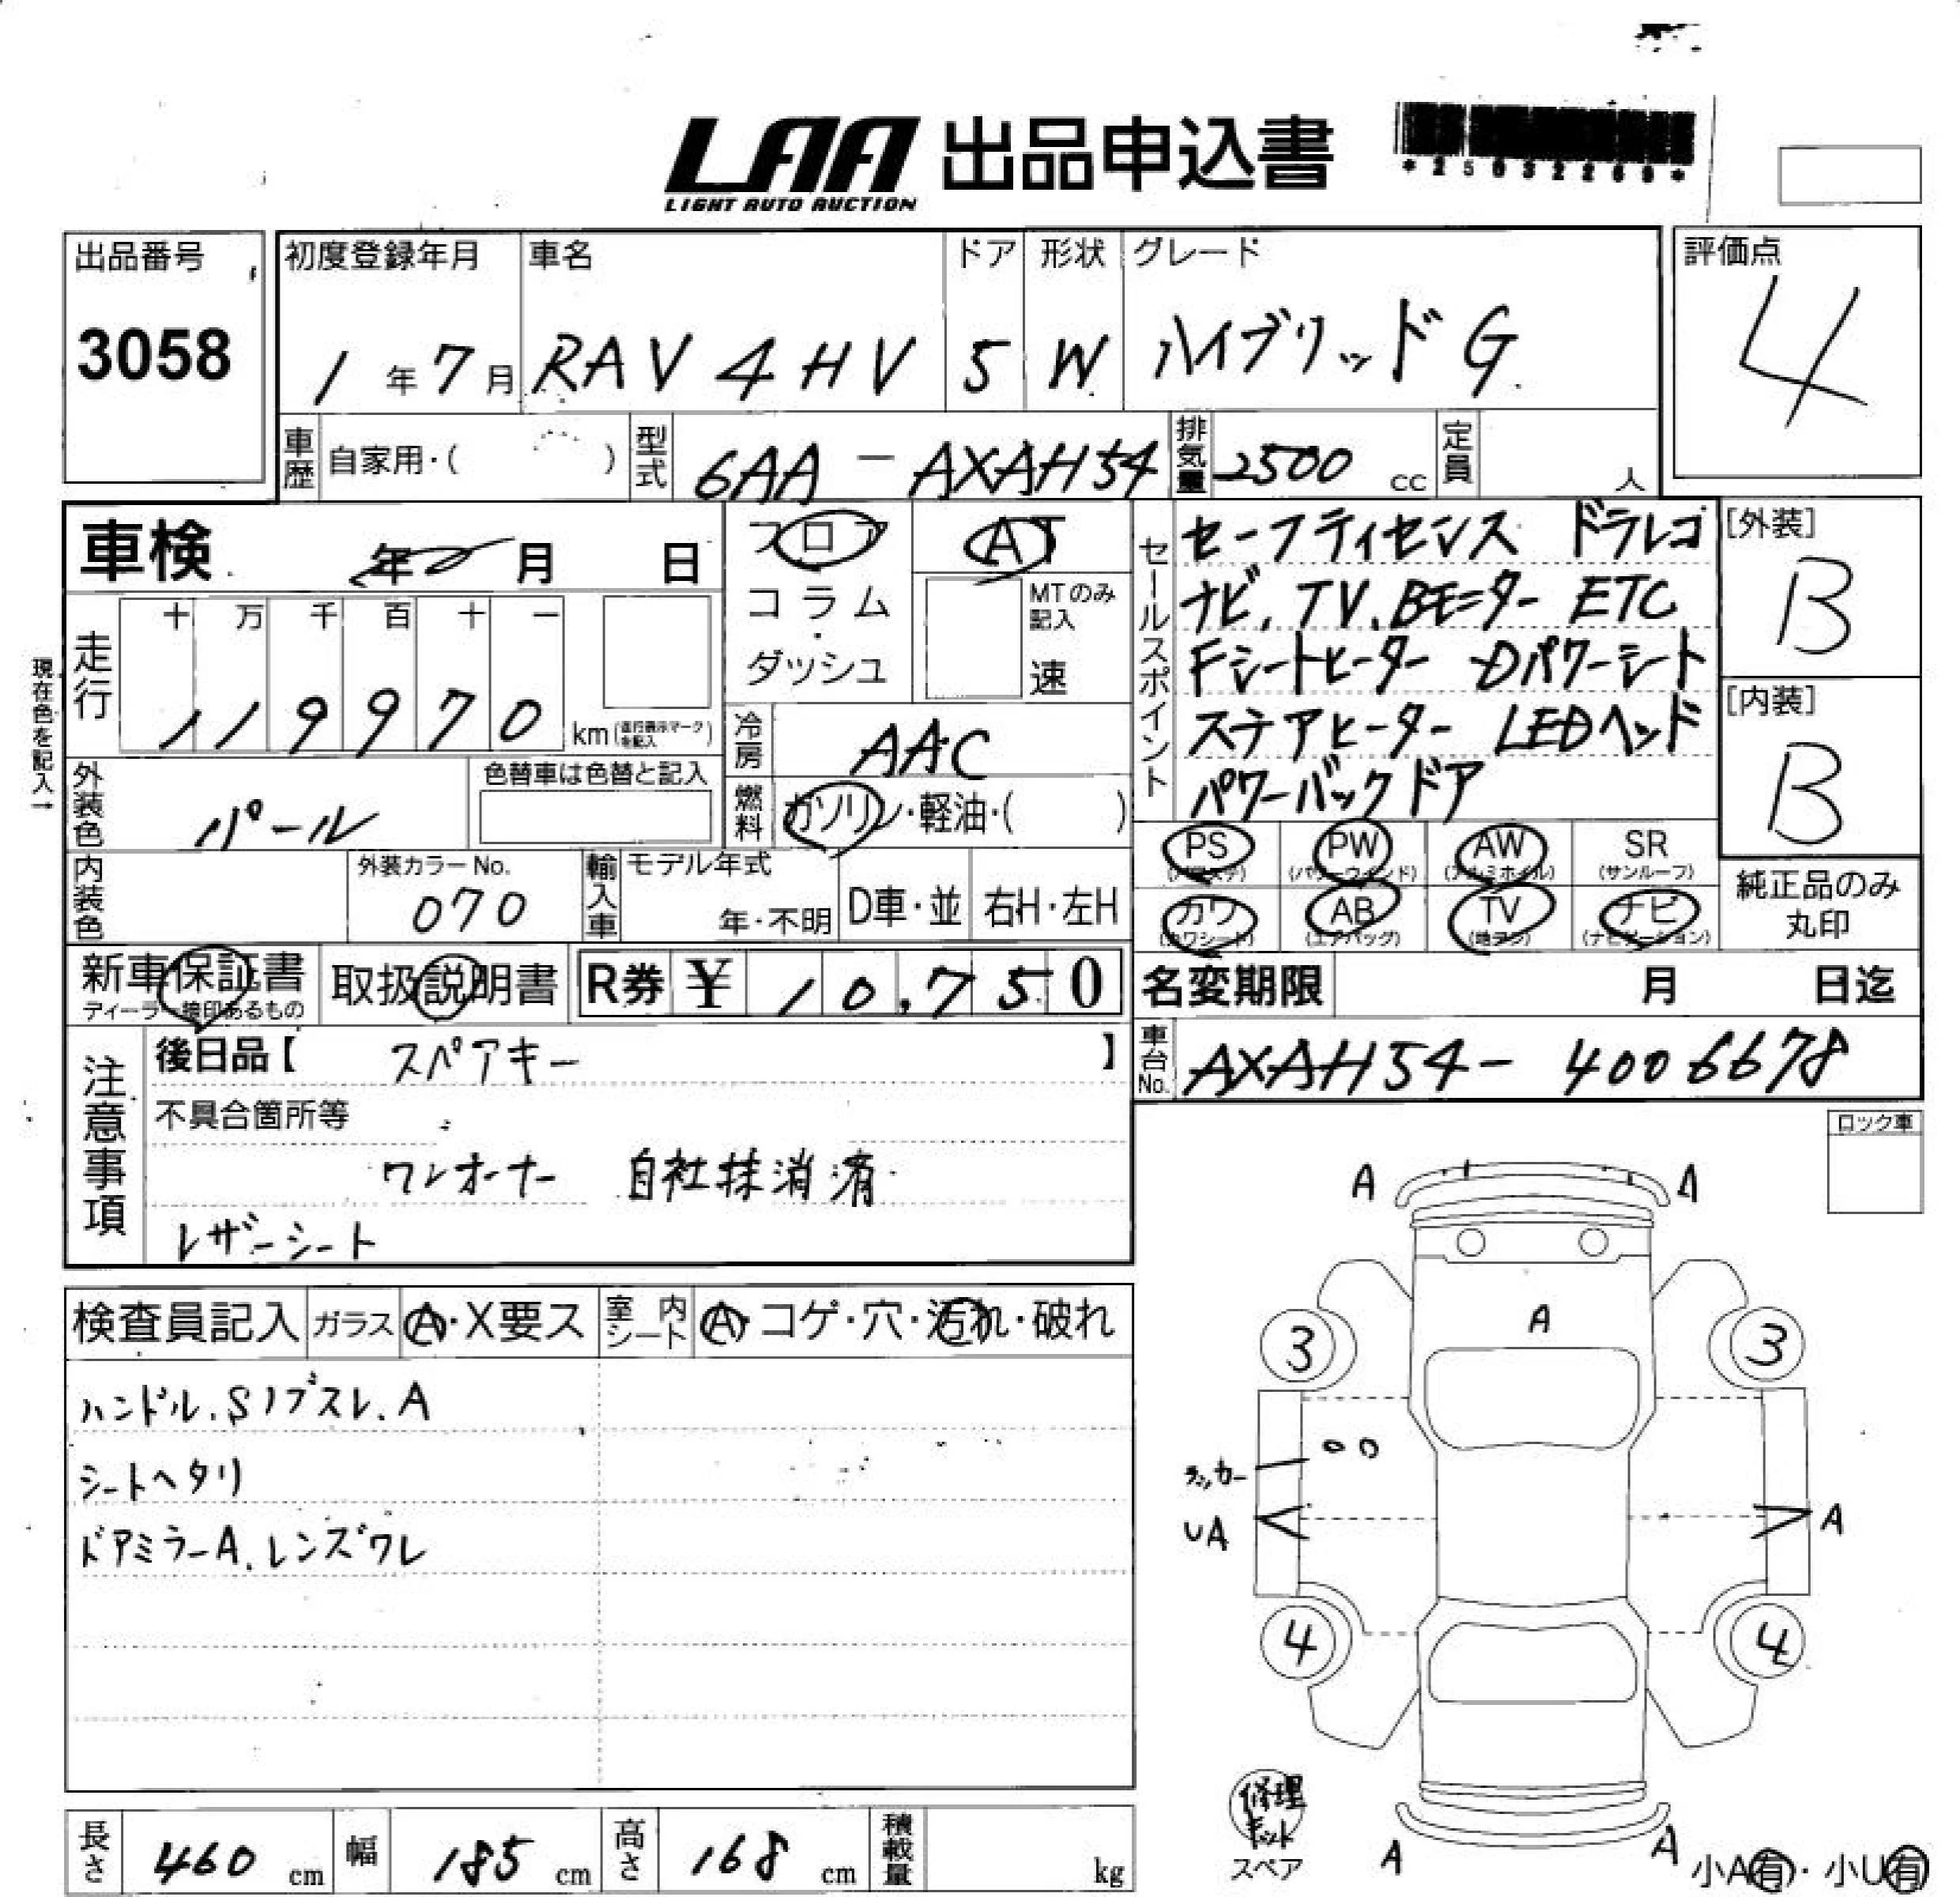 LAA 出品申込書
LIGHT AUTO AUCTION
*25032269*
出品番号
3058
初度登録年月
1年7月
車名
RAV4 HV
ドア
5
形状
W
グレード
ハイブリッドG
評価点
4
車歴 自家用・( )
型式 6AA - AXAH54
排気量 2500 cc
定員 人
車検 年 月 日
フロア
コラム
・
ダッシュ
AT
MTのみ
記入
速
セールスポイント
セーフティセンス ドラレコ
ナビ、TV、Bモニター ETC
Fシートヒーター Dパワーシート
ステアヒーター LEDヘッド
パワーバックドア
[外装]
B
[内装]
B
現在色を記入→
走行
十 万 千 百 十 一
1 1 9 9 7 0 km (走行表示マークを記入)
冷房 AAC
外装色 パール
色替車は色替と記入
燃料 ガソリン・軽油・( )
PS (パワステ)
PW (パワーウインド)
AW (アルミホイル)
SR (サンルーフ)
カワ (カワシート)
AB (エアバッグ)
TV (地デジ)
ナビ (ナビゲーション)
純正品のみ
丸印
内装色
外装カラーNo.
070
輸入車
モデル年式
年・不明
D車・並
右H・左H
新車保証書
ディーラー捺印あるもの
取扱説明書
R券 ¥ 10,750
名変期限 月 日迄
車台No. AXAH54- 4006678
注意事項
後日品【 スペアキー 】
不具合箇所等
ワンオーナー 自社抹消済
レザーシート
ロック車
検査員記入
ガラス A・X要ス
室内シート A・コゲ・穴・汚れ・破れ
ハンドル、Sノブスレ、A
シートヘタリ
ドアミラーA、レンズワレ
A A
A
3 3
ラッカー
UA A
4 4
修理キット
スペア
A A
小A有・小U有
長さ 460 cm
幅 185 cm
高さ 168 cm
積載量 kg